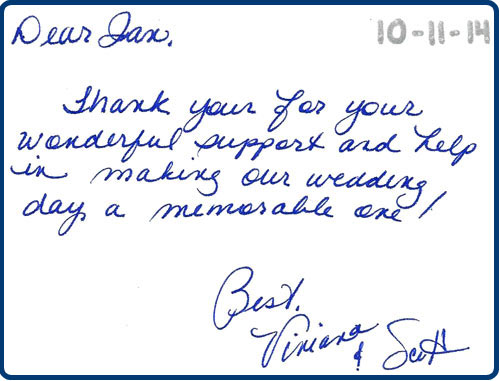 Dear Jan. 10-11-14
Thank your for your
wonderful support and help
in making our wedding
day a memorable one!
Best.
Viviana
& Scott